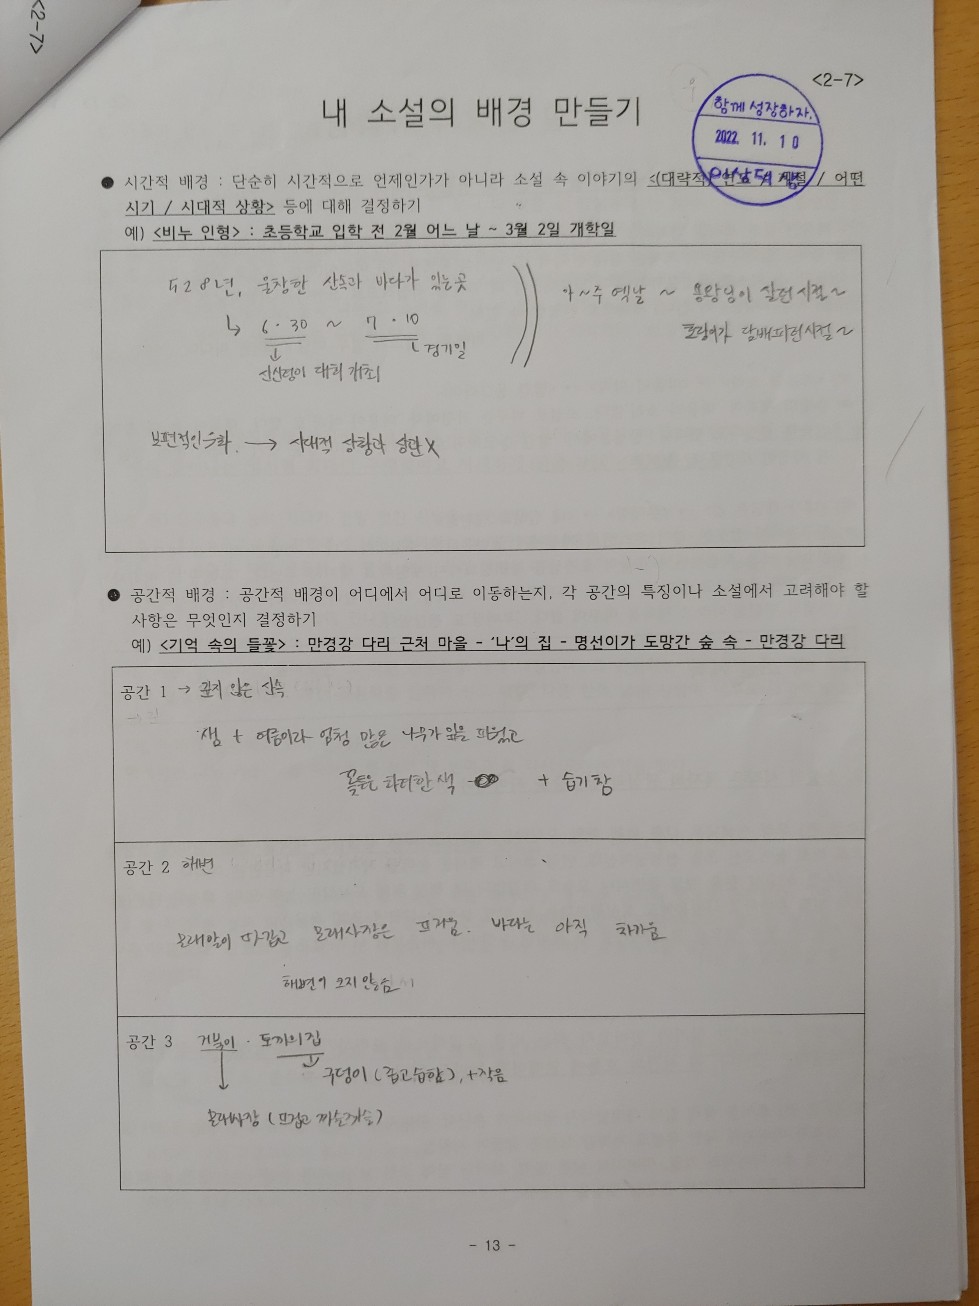 <2-7>
<2-7>
내 소설의 배경 만들기
함께 성장하자.
2022. 11. 10
● 시간적 배경 : 단순히 시간적으로 언제인가가 아니라 소설 속 이야기의 <(대략적) 연도 / 계절 / 어떤
시기 / 시대적 상황> 등에 대해 결정하기
예) <비누 인형> : 초등학교 입학 전 2월 어느 날 ~ 3월 2일 개학일
428년, 울창한 산속과 바다가 있는곳
아~주 옛날 ~ 용왕님이 살던시절~
↳ 6.30 ~ 7.10
호랑이가 담배피던시절~
경기일
신산령이 대회 개최
보편적인우화. → 시대적 상황과 상관X
● 공간적 배경 : 공간적 배경이 어디에서 어디로 이동하는지, 각 공간의 특징이나 소설에서 고려해야 할
사항은 무엇인지 결정하기
예) <기억 속의 들꽃> : 만경강 다리 근처 마을 - ‘나’의 집 - 명선이가 도망간 숲 속 - 만경강 다리
공간 1 → 깊지 않은 산속
샘 + 여름이라 엄청 많은 나무가 잎을 피웠고
꽃들은 화려한 색 + 습기참
공간 2 해변
모래알이 따갑고 모래사장은 뜨거움. 바다는 아직 차가움
해변이 크지 않음
공간 3 거북이 · 토끼의집
구덩이 (좁고습함), +작음
모래사장 (뜨겁고 까슬까슬)
- 13 -